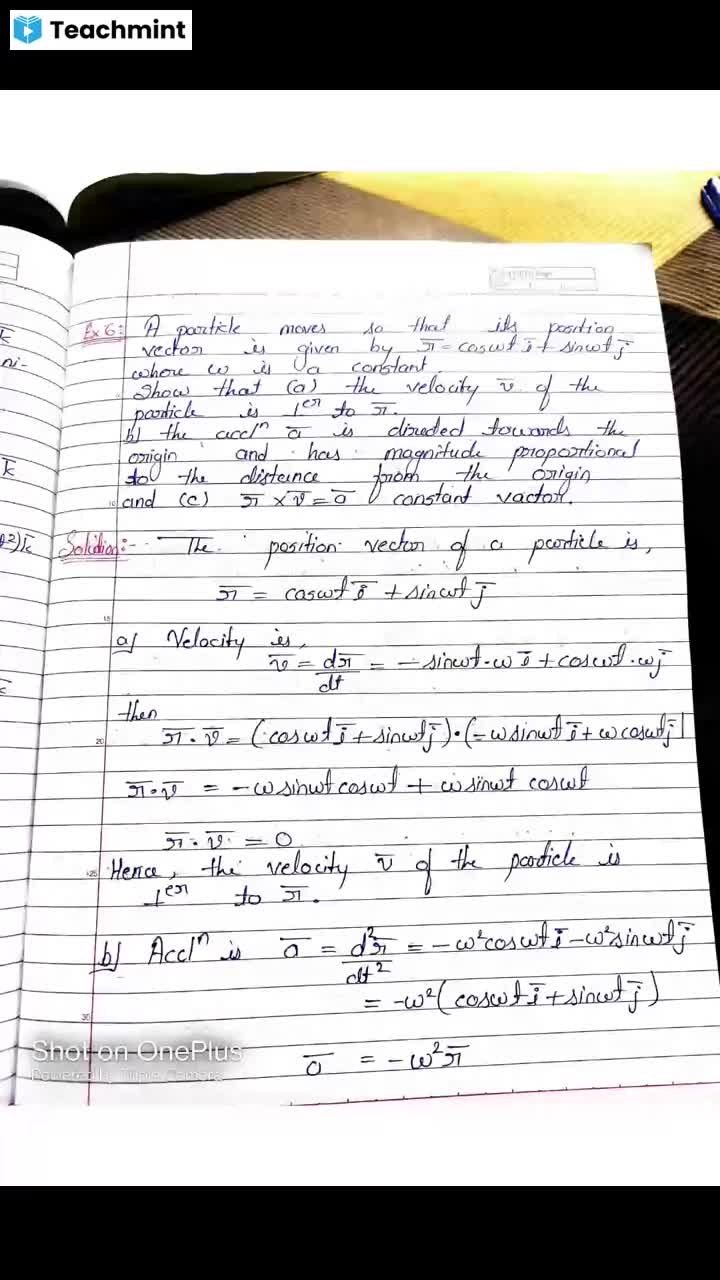 Teachmint
Ex 6: A particle moves so that its position
vector is given by r̄ = coswt ī + sinwt j̄
where w is a constant
Show that (a) the velocity v̄ of the
particle is ⊥er to r̄.
b) the accln ā is directed towards the
origin and has magnitude proportional
to the distance from the origin
and (c) r̄ × v̄ = a constant vactor.
Solution:- The position vector of a particle is,
r̄ = coswt ī + sinwt j̄
a) Velocity is,
v̄ = dr̄/dt = -sinwt·w ī + coswt·w j̄
then
r̄ · v̄ = (coswt ī + sinwt j̄)·(-w sinwt ī + w coswt j̄)
r̄·v̄ = -w sinwt coswt + w sinwt coswt
r̄ · v̄ = 0
Hence, the velocity v̄ of the particle is
⊥er to r̄.
b) Accln is ā = d²r̄/dt² = -w²coswt ī - w²sinwt j̄
= -w²(coswt ī + sinwt j̄)
ā = -w²r̄
k̄
ni-
k̄
2)k̄
Shot on OnePlus
Powered by Triple Camera